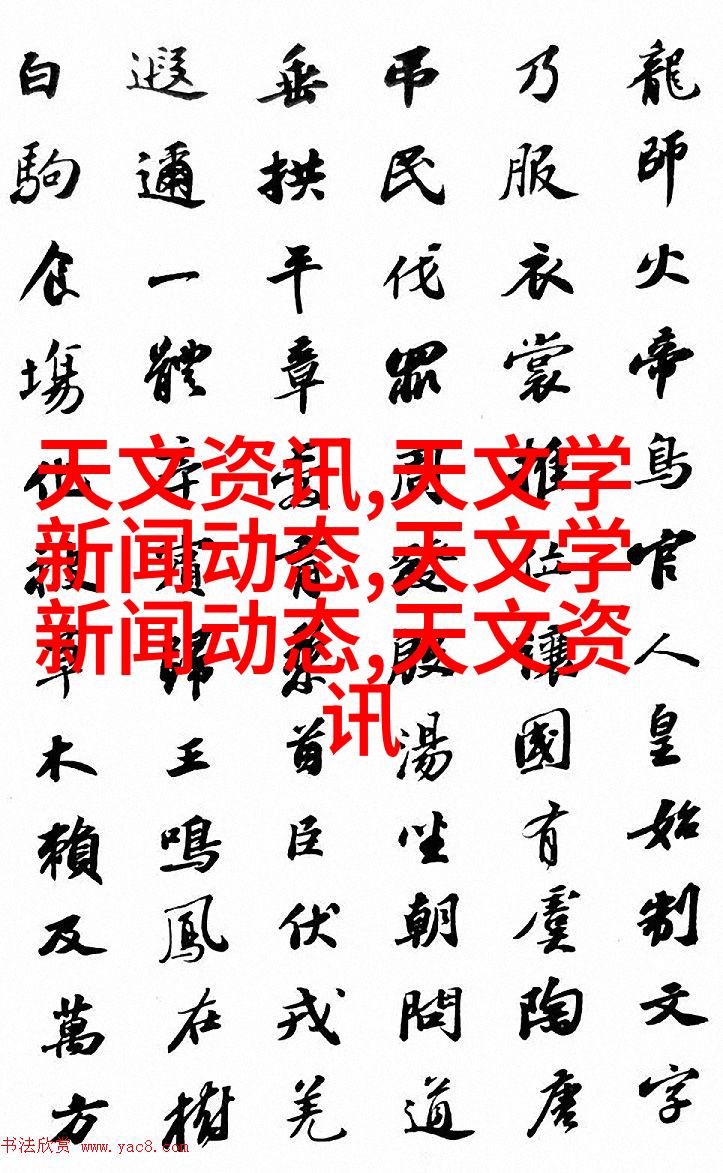 龍師火帝鳥官人皇始制文字
乃服衣裳推位讓國有虞陶唐
吊民伐罪周發殷湯坐朝問道
垂拱平章愛育黎首臣伏戎羌
遐邇一體率賓歸王鳴鳳在樹
白駒食塲化被草木賴及萬方
天文资讯,天文学
新闻动态,天文学
新闻动态,天文资
讯
书法欣赏 www.yac8.com